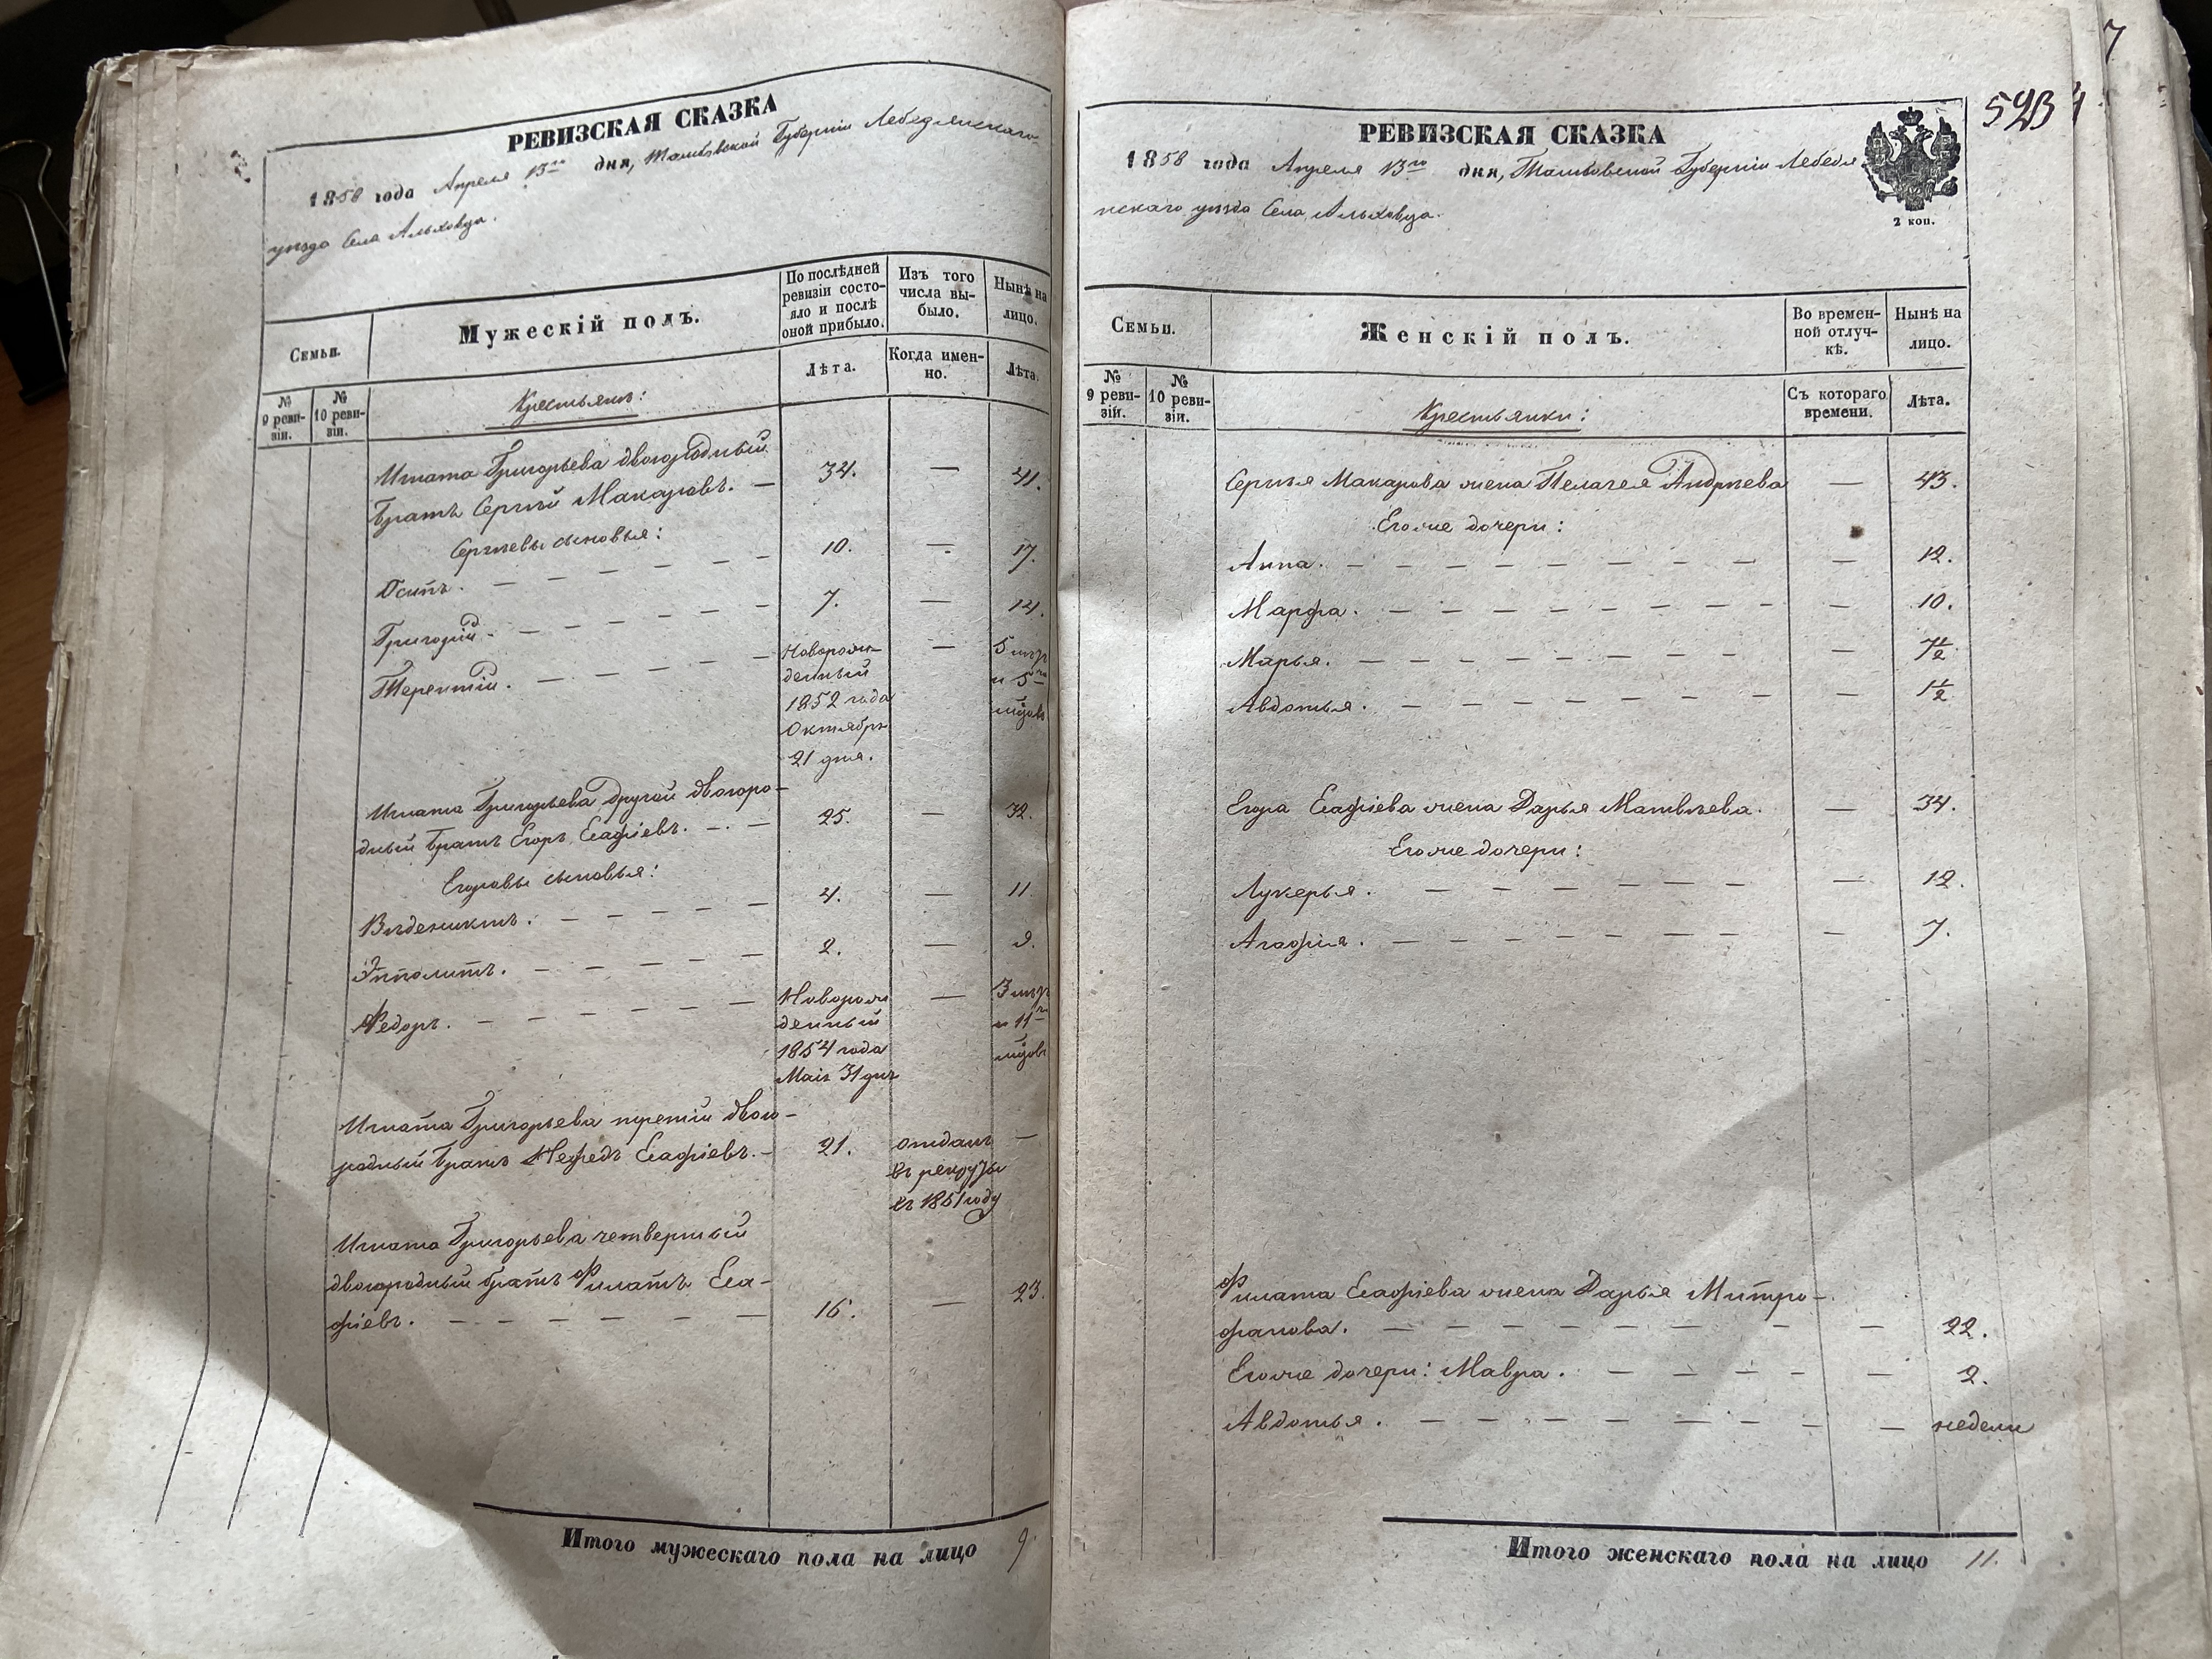 РЕВИЗСКАЯ СКАЗКА
1858 года Апреля 13го дня, Тамбовской Губерніи Лебедянскаго
уѣзда Села Альховца.
Семьи.
Мужескій полъ.
По послѣдней ревизіи состо-
яло и послѣ оной прибыло.
Изъ того числа вы-
было.
Нынѣ на лицо.
№ 9 реви-
зіи.
№ 10 реви-
зіи.
Крестьяне:
Лѣта.
Когда имен-
но.
Лѣта.
Игната Григорьева двоюродный
братъ Сергѣй Макаровъ. — 34. — 41.
Сергѣевы сыновья:
Осипъ. — 10. — 17.
Григорій. — 7. — 14.
Терентій. — Новорож-
денный
1852 года
Октября
21 дня.
— 5 лѣтъ
и 5ть
мѣсяцовъ
Игната Григорьева другой двоюро-
дный братъ Егоръ Еафіевъ. — 25. — 32.
Егоровы сыновья:
Вѣдениктъ. — 4. — 11.
Эпполитъ. — 2. — 9.
Федоръ. — Новорож
денный
1854 года
Маія 31 дня
— 3 лѣтъ
и 11ть
Игната Григорьева третій двою-
родный братъ Нефедъ Еафіевъ. — 21. отданъ —
въ рекруты
въ 1851 году
Игната Григорьева четвертый
двоюродный братъ Филатъ Еа-
фіевъ. — 16. — 23.
Итого мужескаго пола на лицо 9
523
7
РЕВИЗСКАЯ СКАЗКА
1858 года Апреля 13го дня, Тамбовской Губерніи Лебедя
нскаго уѣзда Села Альховца.
2 коп.
Семьи.
Женскій полъ.
Во времен-
ной отлуч-
кѣ.
Нынѣ на лицо.
№ 9 реви-
зіи.
№ 10 реви-
зіи.
Крестьянки:
Съ котораго времени.
Лѣта.
Сергѣя Макарова жена Пелагея Андрѣева — 43.
Его же дочери:
Анна. — 12.
Марфа. — 10.
Марья. — 7½
Авдотья. — 1½
Егора Еафіева жена Дарья Матвѣева. — 34.
Его же дочери:
Лукерья. — 12.
Агафья. — 7.
Филата Еафіева жена Дарья Митро-
фанова. — 22.
Его же дочери: Мавра. — 2.
Авдотья. — недели
Итого женскаго пола на лицо 11.